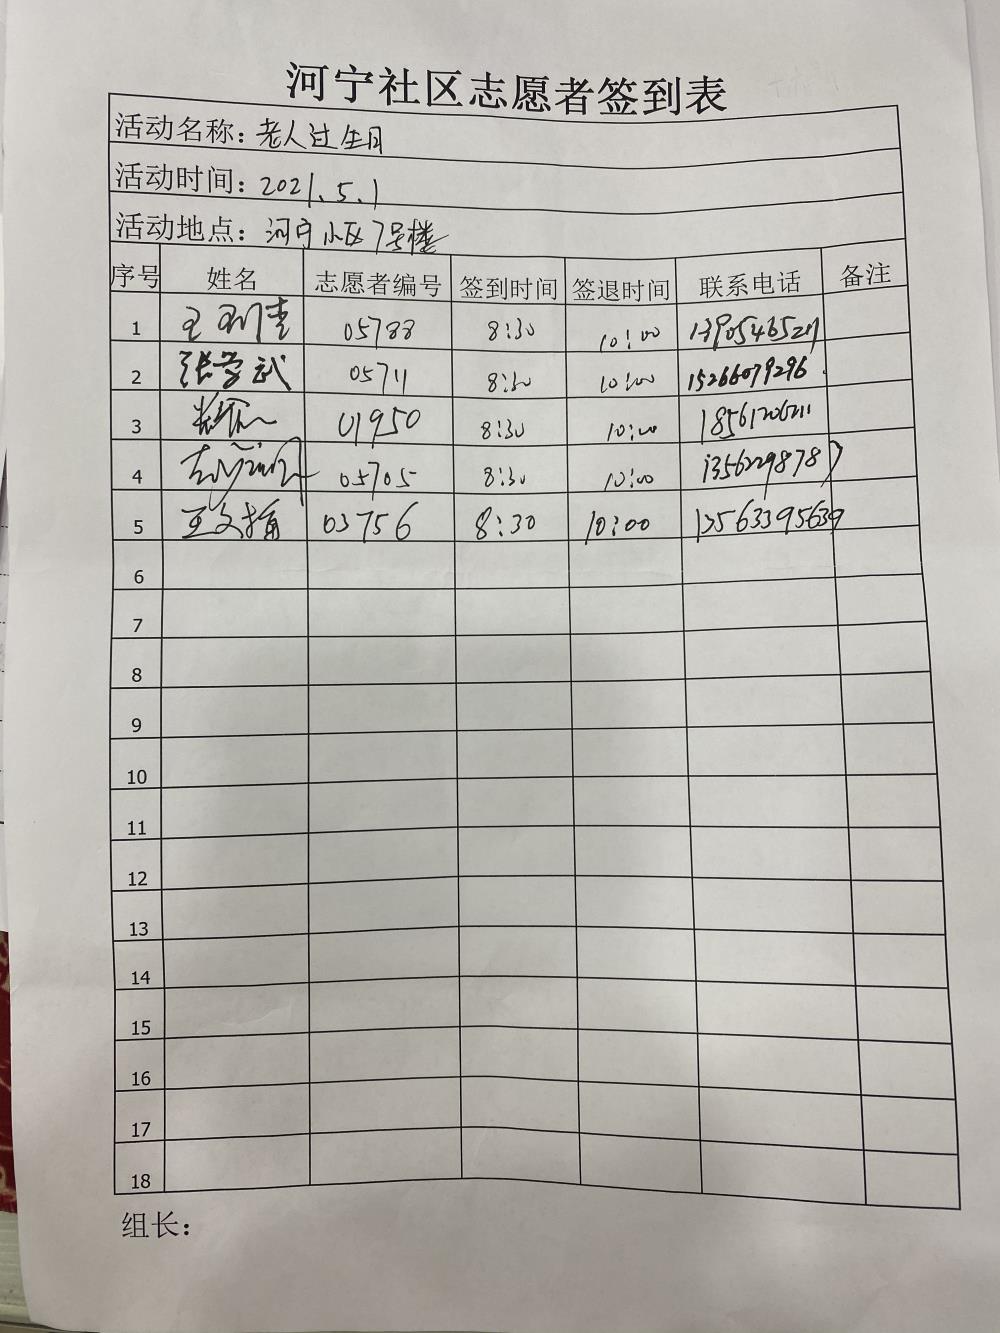 河宁社区志愿者签到表
活动名称：老人过生日
活动时间：2021.5.1
活动地点：河宁小区7号楼
序号 姓名 志愿者编号 签到时间 签退时间 联系电话 备注
1 05788 8:30 10:00
2 张学武 05711 8:30 10:00 15266079296
3 01950 8:30 10:00 18561206211
4 05705 8:30 10:00
5 03756 8:30 10:00 13563395639
6
7
8
9
10
11
12
13
14
15
16
17
18
组长：